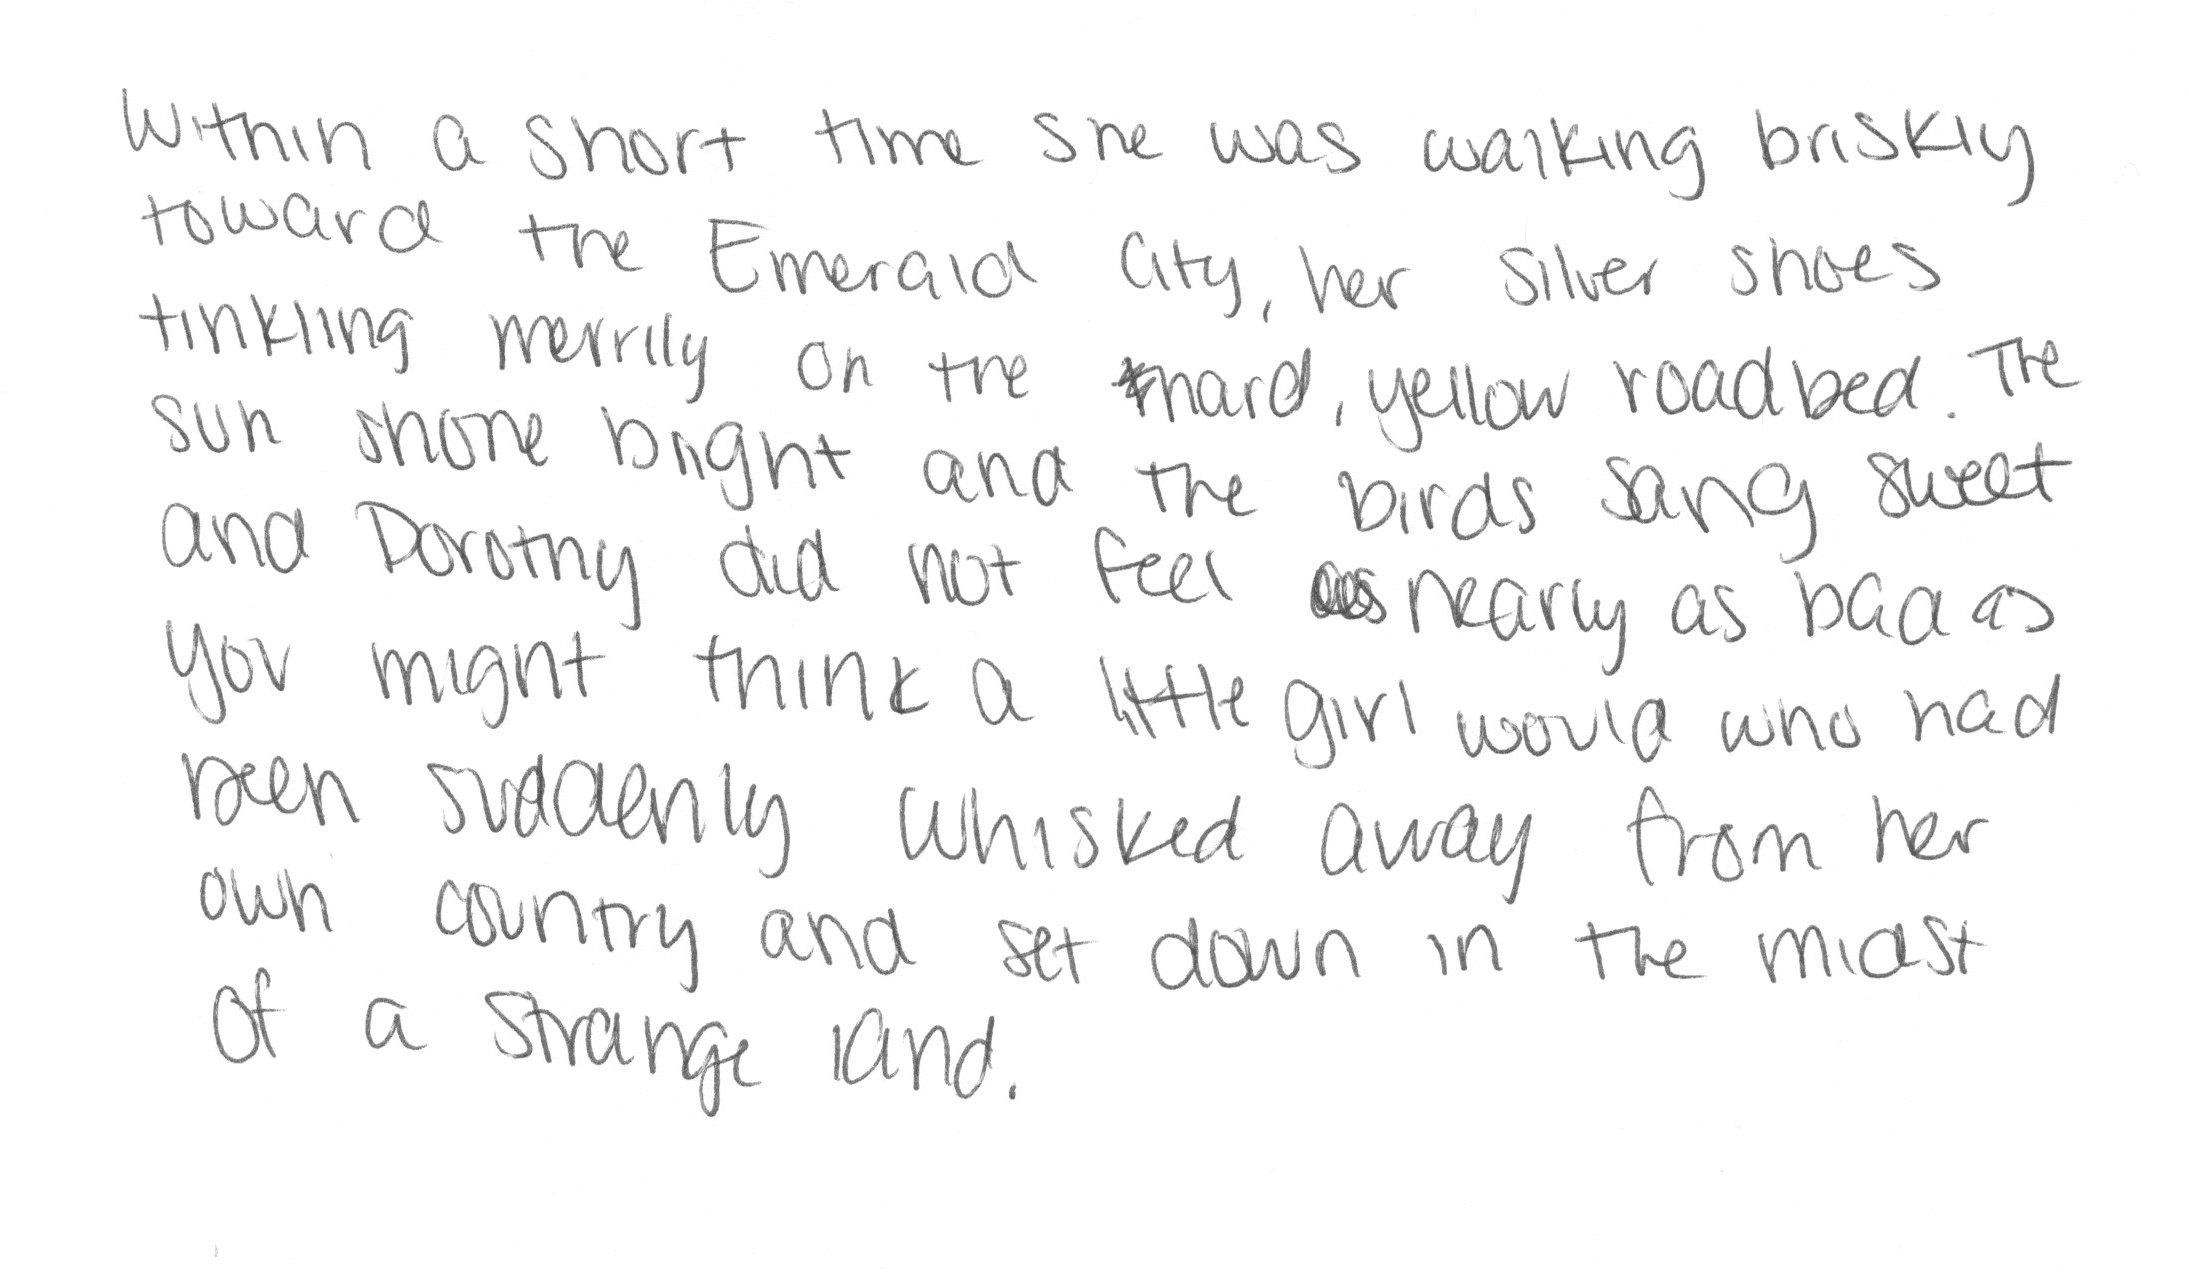 Within a short time she was walking briskly
toward the Emerald City, her silver shoes
tinkling merrily on the hard, yellow roadbed. The
sun shone bright and the birds sang sweet
and Dorothy did not feel nearly as bad as
you might think a little girl would who had
been suddenly whisked away from her
own country and set down in the midst
of a strange land.